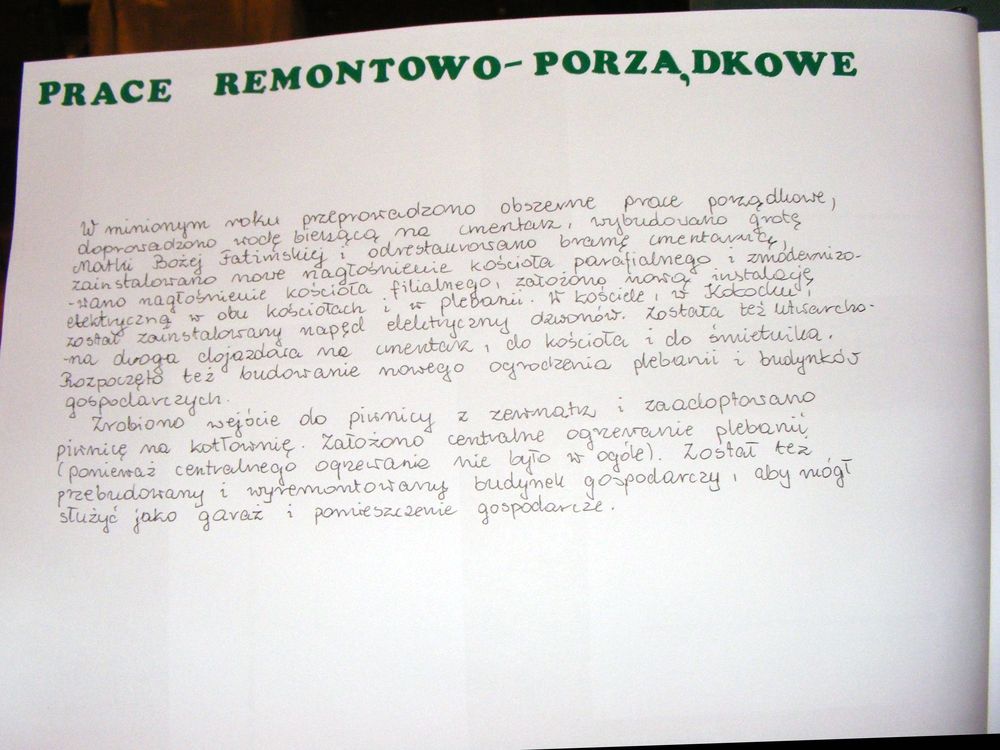 PRACE REMONTOWO-PORZĄDKOWE
W minionym roku przeprowadzono obszerne prace porządkowe,
doprowadzono wodę bieżącą na cmentarz, wybudowano grotę
Matki Bożej Fatimskiej i odrestaurowano bramę cmentarną,
zainstalowano nowe nagłośnienie kościoła parafialnego i zmodernizo-
-wano nagłośnienie kościoła filialnego, założono nową instalację
elektryczną w obu kościołach i w plebanii. W kościele, w Kokocku,
został zainstalowany napęd elektryczny dzwonów. Została też utwardzo-
-na droga dojazdowa na cmentarz, do kościoła i do śmietnika.
Rozpoczęto też budowanie nowego ogrodzenia plebanii i budynków
gospodarczych.
Zrobiono wejście do piwnicy z zewnątrz i zaadoptowano
piwnicę na kotłownię. Założono centralne ogrzewanie plebanii
(ponieważ centralnego ogrzewania nie było w ogóle). Został też
przebudowany i wyremontowany budynek gospodarczy, aby mógł
służyć jako garaż i pomieszczenie gospodarcze.